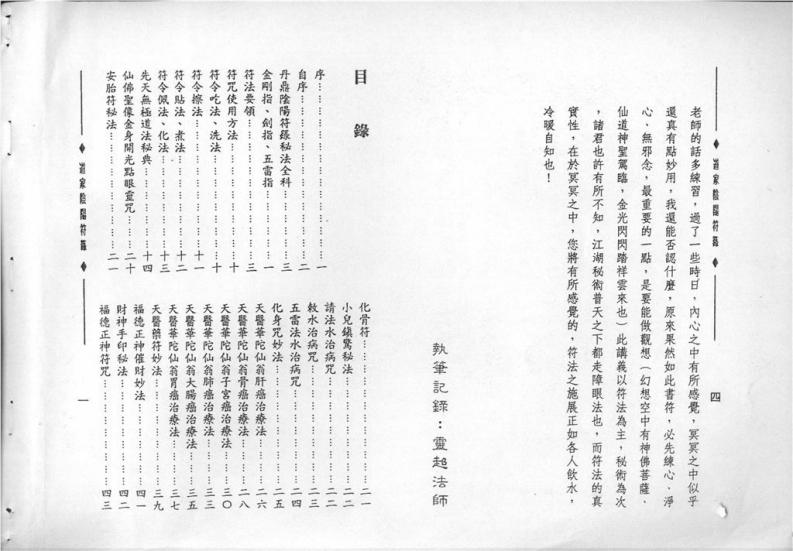 ◆ 道家陰陽符籙 ◆
四
老師的話多練習，過了一些時日，內心之中有所感覺，冥冥之中似乎
還真有點妙用，我還能否認什麼，原來果然如此書符，必先練心、淨
心、無邪念，最重要的一點，是要能做觀想（幻想空中有神佛菩薩、
仙道神聖駕臨，金光閃閃踏祥雲來也）此講義以符法為主，秘術為次
，諸君也許有所不知，江湖秘術普天之下都走障眼法也，而符法的真
實性，在於冥冥之中，您將有所感覺的，符法之施展正如各人飲水，
冷暖自知也！
執筆記錄：靈超法師
目錄
序……………………………一
自序…………………………二
丹鼎陰陽符籙秘法全科………三
金剛指、劍指、五雷指………一
符法要領……………………三
符咒使用方法………………十
符令吃法、洗法……………十
符令擦法……………………十一
符令貼法、煮法……………十二
符令佩法、化法……………十三
先天無極道法秘典…………十四
仙佛聖像金身開光點眼靈咒…二十
安胎符秘法…………………二一
化骨符………………………二一
小兒鎮驚秘法………………二二
請法水治病咒………………二二
敕水治病咒…………………二三
五雷法水治病咒……………二四
化身咒妙法…………………二五
天醫華陀仙翁肝癌治療法……二六
天醫華陀仙翁骨癌治療法……二八
天醫華陀仙翁子宮癌治療法…三〇
天醫華陀仙翁肺癌治療法……三三
天醫華陀仙翁大腸癌治療法…三五
天醫華陀仙翁胃癌治療法……三七
天醫藥符妙法………………三九
福德正神催財妙法…………四一
財神手印秘法………………四二
福德正神符咒………………四三
◆ 道家陰陽符籙 ◆
一